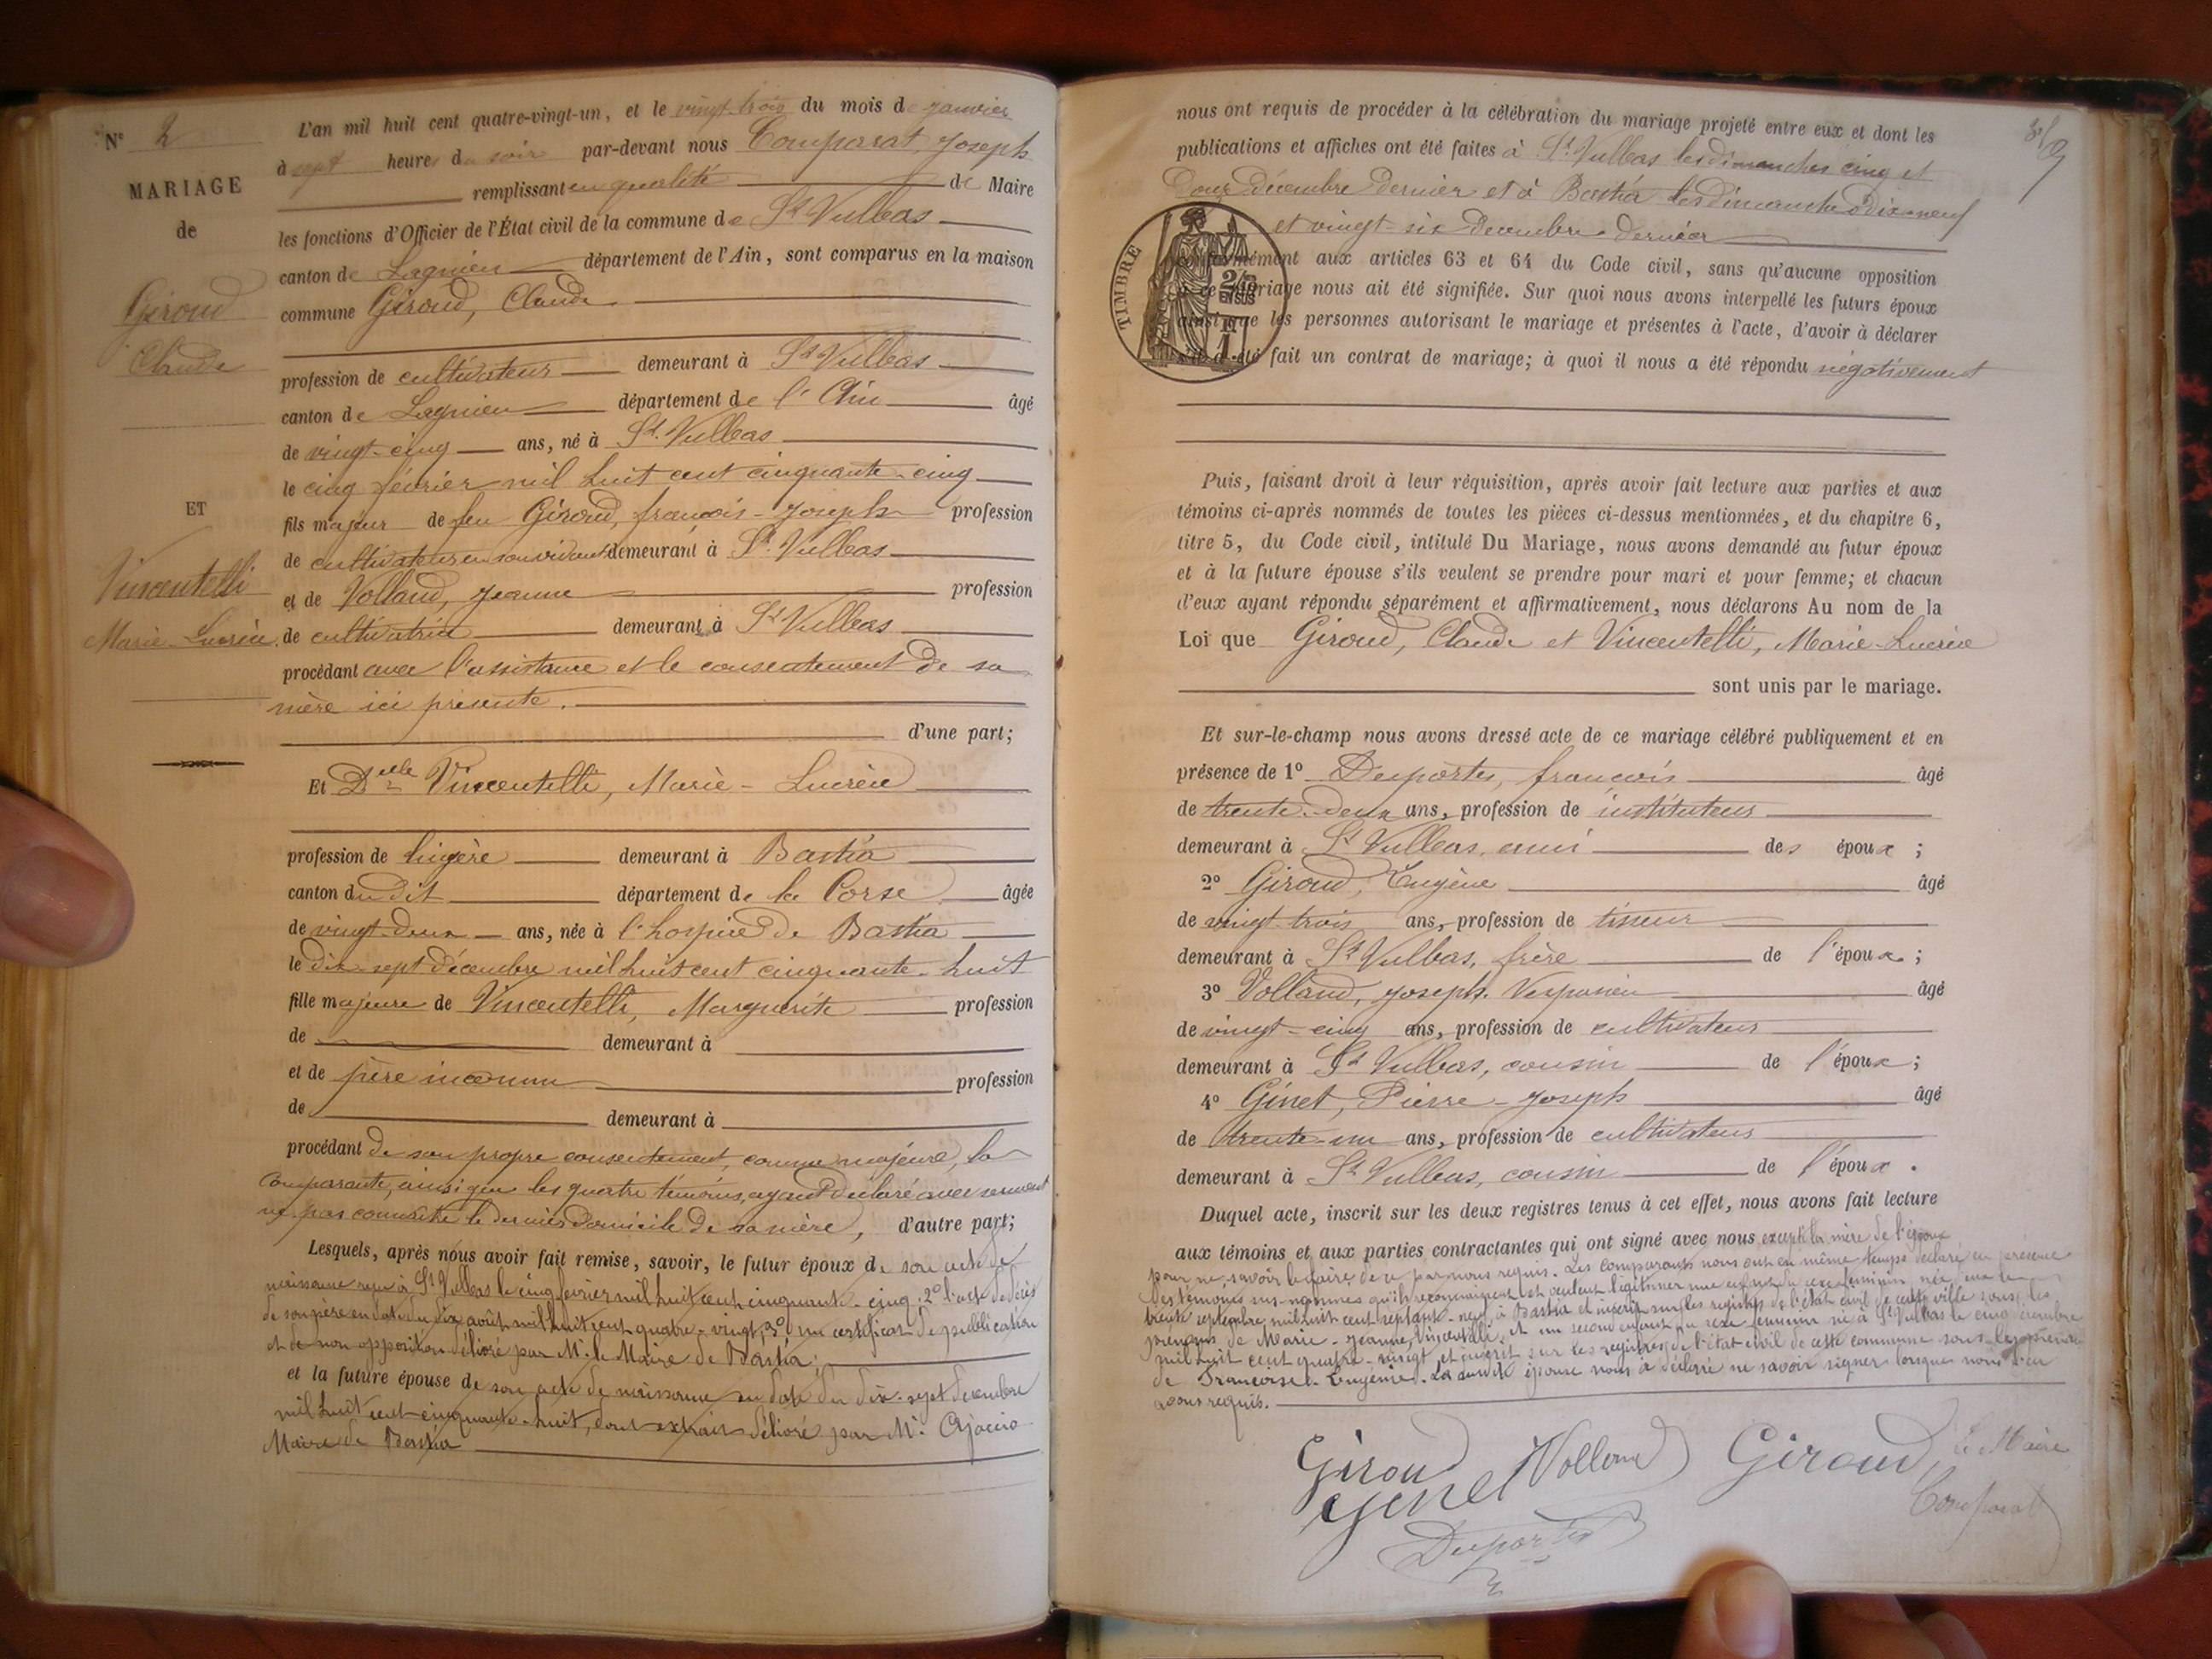 N° 2
MARIAGE
de
Giroud
Claude
ET
Vincentelli
Marie-Lucrèce.
L'an mil huit cent quatre-vingt-un, et le vingt-trois du mois de janvier
à sept heures du soir par-devant nous Comparat, Joseph
remplissant en qualité de Maire
les fonctions d'Officier de l'État civil de la commune de St Vulbas
canton de Lagnieu département de l'Ain, sont comparus en la maison
commune Giroud, Claude
profession de cultivateur demeurant à St Vulbas
canton de Lagnieu département de l'Ain âgé
de vingt-cinq ans, né à St Vulbas
le cinq février mil huit cent cinquante-cinq
fils majeur de feu Giroud, françois-Joseph profession
de cultivateur en son vivant demeurant à St Vulbas
et de Volland, Jeanne profession
de cultivatrice demeurant à St Vulbas
procédant avec l'assistance et le consentement de sa
mère ici présente.
d'une part;
Et Delle Vincentelli, Marie-Lucrèce
profession de lingère demeurant à Bastia
canton du dit département de la Corse âgée
de vingt-deux ans, née à l'hospice de Bastia
le dix-sept décembre mil huit cent cinquante-huit
fille majeure de Vincentelli, Marguerite profession
de demeurant à
et de père inconnu profession
de demeurant à
procédant de son propre consentement, comme majeure, la
Comparante, ainsi que les quatre témoins, ayant déclaré avec serment
ne pas connaître le dernier domicile de sa mère, d'autre part;
Lesquels, après nous avoir fait remise, savoir, le futur époux de son acte de
naissance reçu à St Vulbas le cinq février mil huit cent cinquante-cinq; 2° l'acte de décès
de son père en date du dix août mil huit cent quatre-vingt, 3° un certificat de publication
et de non opposition délivré par Mr le Maire de Bastia;
et la future épouse de son acte de naissance en date du dix-sept décembre
mil huit cent cinquante-huit, dont extrait délivré par Mr Ajaccio
Maire de Bastia
nous ont requis de procéder à la célébration du mariage projeté entre eux et dont les
publications et affiches ont été faites à St Vulbas les dimanches cinq et
douze décembre dernier et à Bastia les dimanches dix-neuf
et vingt-six Décembre dernier
TIMBRE
2/10 EN SUS
conformément aux articles 63 et 64 du Code civil, sans qu'aucune opposition
à ce mariage nous ait été signifiée. Sur quoi nous avons interpellé les futurs époux
ainsi que les personnes autorisant le mariage et présentes à l'acte, d'avoir à déclarer
s'il a été fait un contrat de mariage; à quoi il nous a été répondu négativement
Puis, faisant droit à leur réquisition, après avoir fait lecture aux parties et aux
témoins ci-après nommés de toutes les pièces ci-dessus mentionnées, et du chapitre 6,
titre 5, du Code civil, intitulé Du Mariage, nous avons demandé au futur époux
et à la future épouse s'ils veulent se prendre pour mari et pour femme; et chacun
d'eux ayant répondu séparément et affirmativement, nous déclarons Au nom de la
Loi que Giroud, Claude et Vincentelli, Marie-Lucrèce
sont unis par le mariage.
Et sur-le-champ nous avons dressé acte de ce mariage célébré publiquement et en
présence de 1° Desportes, françois âgé
de trente-deux ans, profession de instituteur
demeurant à St Vulbas, ami des époux;
2° Giroud, Eugène âgé
de vingt-trois ans, profession de tisseur
demeurant à St Vulbas, frère de l'époux;
3° Volland, Joseph-Vespasien âgé
de vingt-cinq ans, profession de cultivateur
demeurant à St Vulbas, cousin de l'époux;
4° Ginet, Pierre-Joseph âgé
de trente-un ans, profession de cultivateur
demeurant à St Vulbas, cousin de l'époux.
Duquel acte, inscrit sur les deux registres tenus à cet effet, nous avons fait lecture
aux témoins et aux parties contractantes qui ont signé avec nous excepté la mère de l'époux
pour ne savoir le faire, de ce par nous requis. Les comparants nous ont en même temps déclaré en présence
des témoins sus-nommés qu'ils reconnaissent et veulent légitimer une enfant du sexe féminin née le
trente septembre mil huit cent septante-neuf à Bastia et inscrit sur les registres de l'état civil de cette ville sous les
prénoms de Marie-Jeanne, Vincentelli, et un second enfant du sexe féminin né à St Vulbas le cinq
mil huit cent quatre-vingt et inscrit sur les registres de l'état civil de cette commune sous les prénoms
de Françoise-Eugénie. La dite épouse nous a déclaré ne savoir signer lorsque nous l'en
avons requis.
Giroud Volland Giroud Le Maire
Ginet Comparat
Desportes